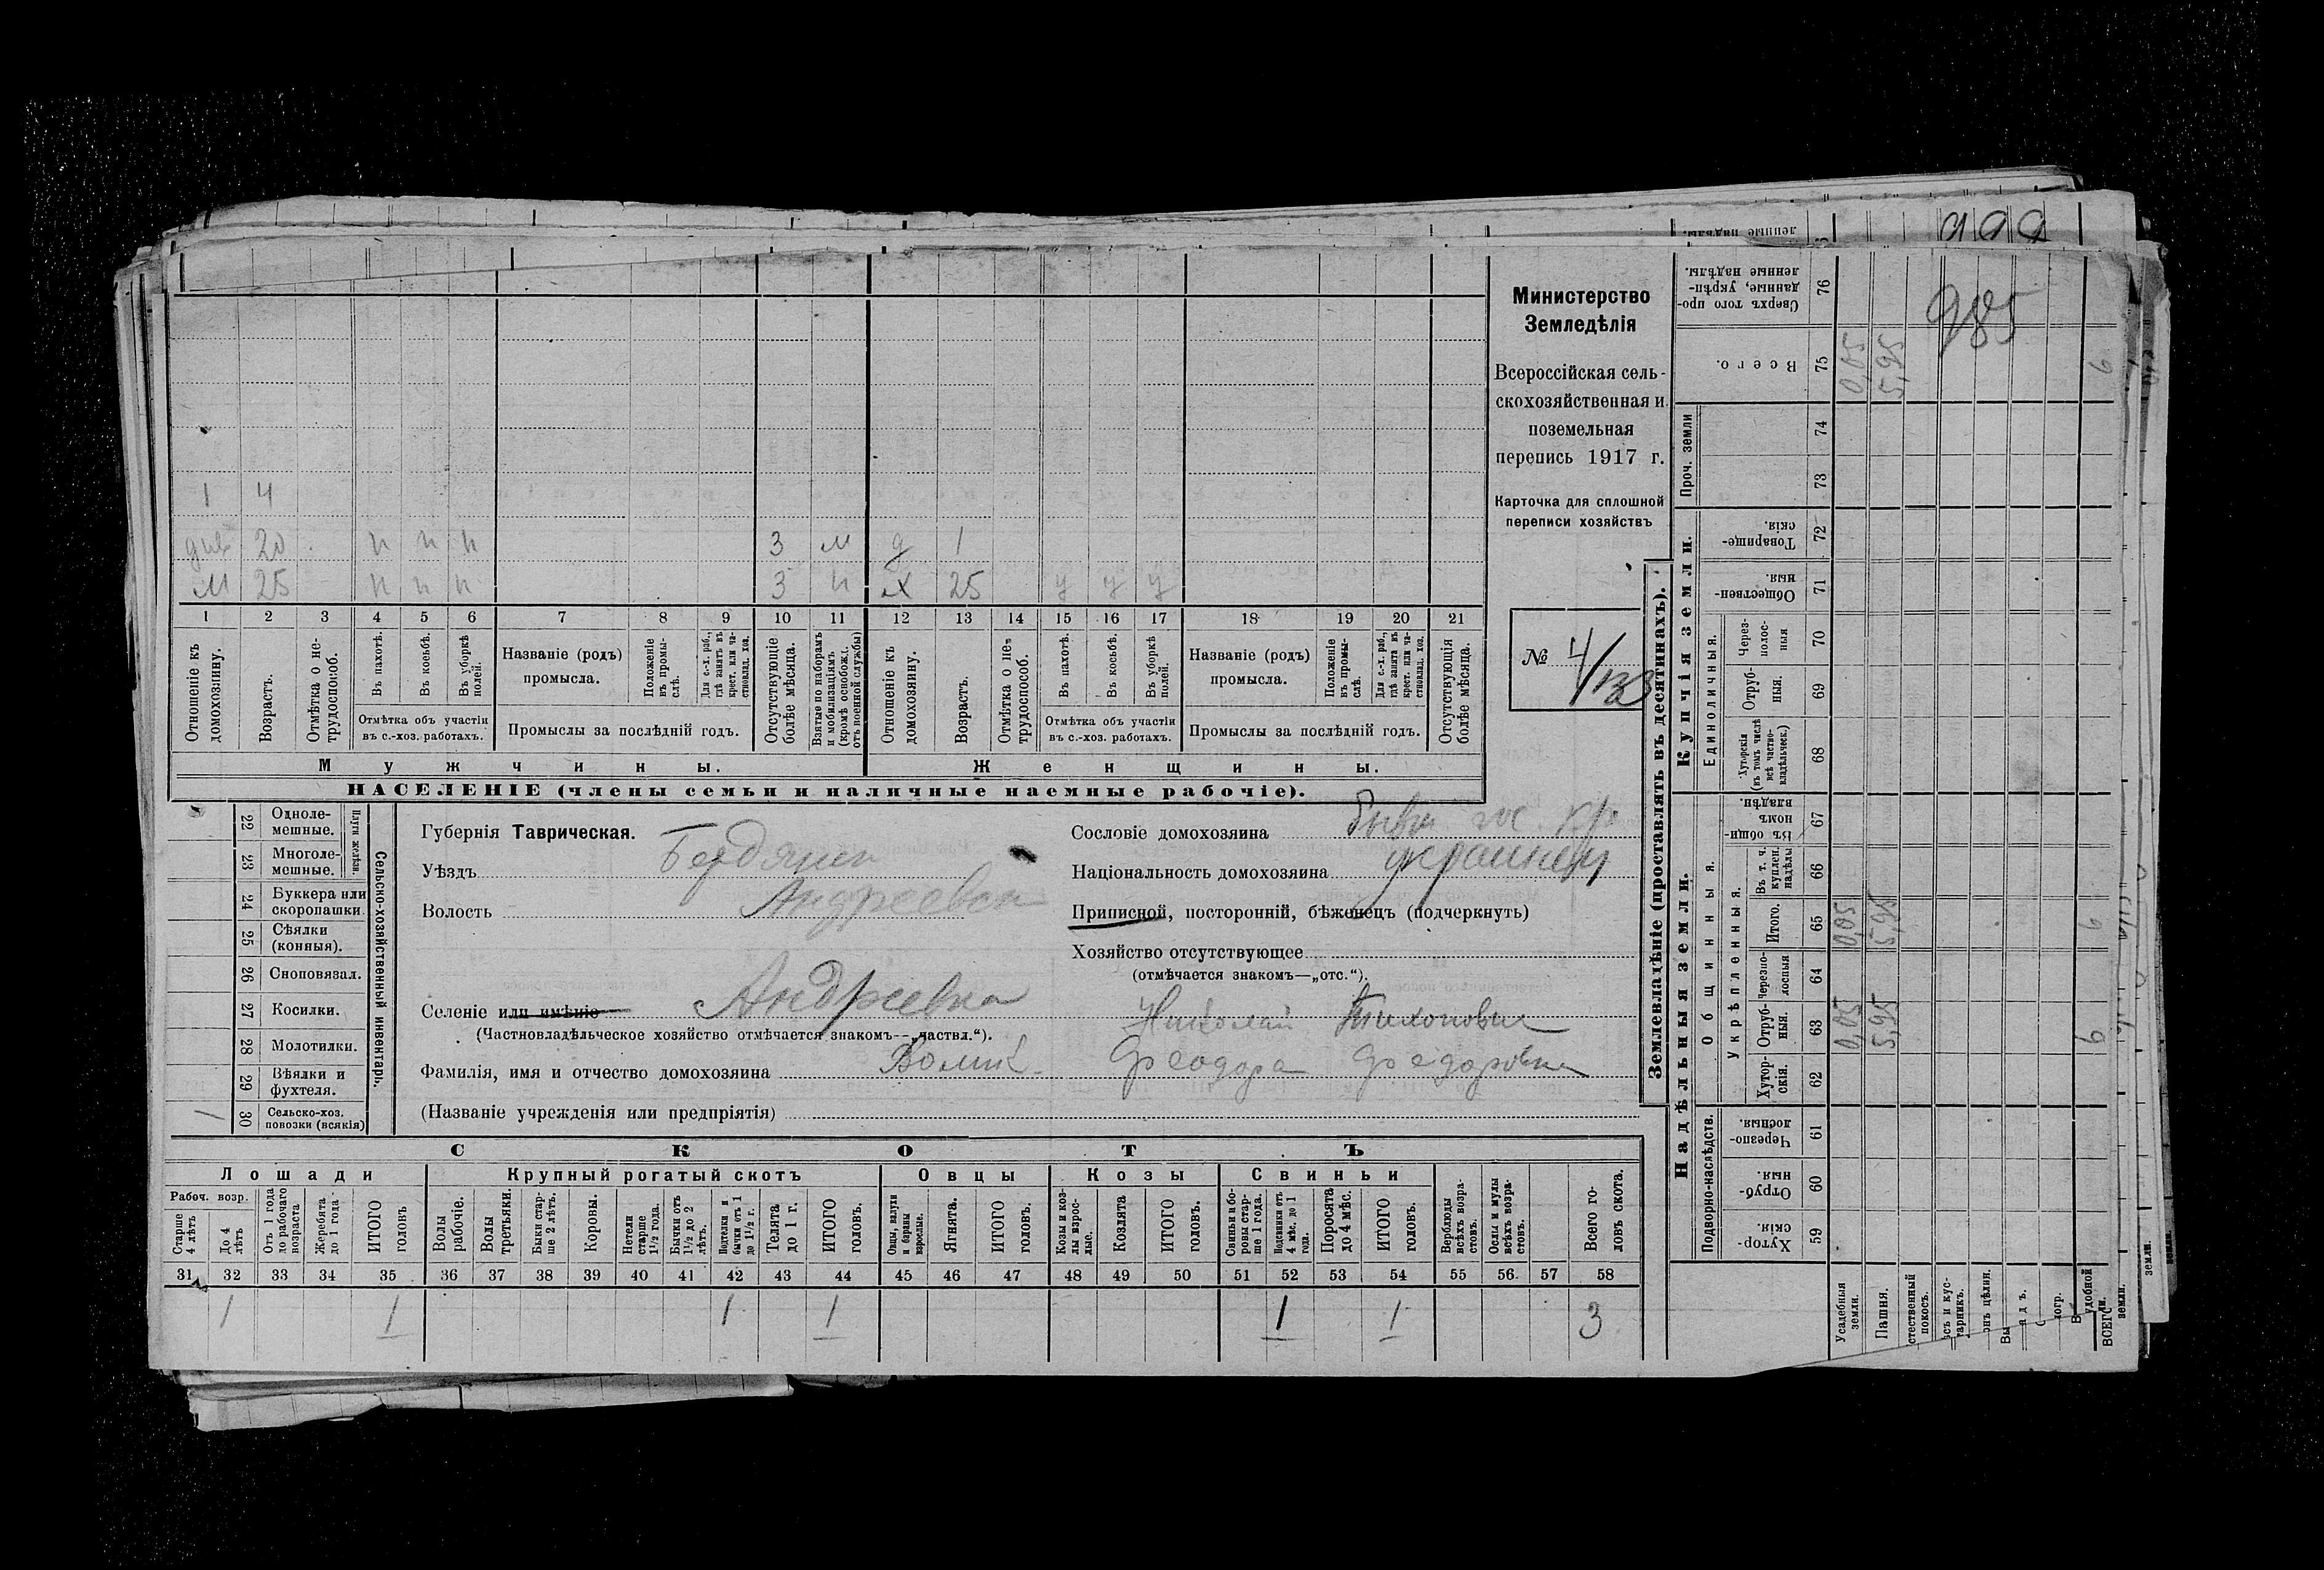 985
Министерство
Земледѣлія
Всероссійская сель-
скохозяйственная и
поземельная
перепись 1917 г.
Карточка для сплошной
переписи хозяйствъ
№ 4/133
1 4
20 п п п 3 м д 1
м 25 п п п 3 п х 25 у у у
1 2 3 4 5 6 7 8 9 10 11 12 13 14 15 16 17 18 19 20 21
Отношеніе къ домохозяину.
Возрастъ.
Отмѣтка о не-трудоспособ.
Въ пахотѣ.
Въ косьбѣ.
Въ уборкѣ полей.
Отмѣтка объ участіи въ с.-хоз. работахъ.
Названіе (родъ) промысла.
Положеніе въ промы-слѣ.
Для с.-х. раб., гдѣ занятъ въ крест. или ча-стновлад. хоз.
Промыслы за послѣдній годъ.
Отсутствующіе болѣе мѣсяца.
Взятые по наборамъ и мобилизаціямъ (кромѣ освобожд. отъ военной службы)
Отношеніе къ домохозяину.
Возрастъ.
Отмѣтка о не-трудоспособ.
Въ пахотѣ.
Въ косьбѣ.
Въ уборкѣ полей.
Отмѣтка объ участіи въ с.-хоз. работахъ.
Названіе (родъ) промысла.
Положеніе въ промы-слѣ.
Для с.-х. раб., гдѣ занята въ крест. или ча-стновлад. хоз.
Промыслы за послѣдній годъ.
Отсутствующія болѣе мѣсяца.
Мужчины. Женщины.
НАСЕЛЕНІЕ (члены семьи и наличные наемные рабочіе).
Сельско-хозяйственный инвентарь.
Плуги желѣзн.
22 Однолемешные.
23 Многолемешные.
24 Буккера или скоропашки.
25 Сѣялки (конныя).
26 Сноповязал.
27 Косилки.
28 Молотилки.
29 Вѣялки и фухтеля.
1 30 Сельско-хоз. повозки (всякія)
Губернія Таврическая.
Уѣздъ Бердянск
Волость Андреевск
Селеніе или имѣніе Андреевка
(Частновладѣльческое хозяйство отмѣчается знакомъ—„частвл.“).
Николай Тихонович
Фамилія, имя и отчество домохозяина Волик Феодора Федоровна
(Названіе учрежденія или предпріятія)
Сословіе домохозяина бывш гос. кр.
Національность домохозяина украинец
Приписной, посторонній, бѣженецъ (подчеркнуть)
Хозяйство отсутствующее
(отмѣчается знакомъ—„отс.“).
СКОТЪ
Лошади Крупный рогатый скотъ Овцы Козы Свиньи
Рабоч. возр.
Старше 4 лѣтъ
До 4 лѣтъ
Отъ 1 года до рабочаго возраста
Жеребята до 1 года
ИТОГО головъ
Волы рабочіе.
Волы третьяки.
Быки стар-ше 2 лѣтъ.
Коровы.
Нетели старше 1½ года.
Бычки отъ 1½ до 2 лѣтъ.
Подтелки и бычки отъ 1 до 1½ г.
Телята до 1 г.
ИТОГО головъ.
Овцы, валухи и бараны взрослые.
Ягнята.
ИТОГО головъ.
Козы и коз-лы взрос-лые.
Козлята
ИТОГО головъ.
Свиньи бо-ровы стар-ше 1 года.
Подсвинки отъ 4 мѣс. до 1 года.
Поросята до 4 мѣс.
ИТОГО головъ.
Верблюды всѣхъ возра-стовъ.
Ослы и мулы всѣхъ возра-стовъ.
Всего го-ловъ скота.
31 32 33 34 35 36 37 38 39 40 41 42 43 44 45 46 47 48 49 50 51 52 53 54 55 56 57 58
1 1 1 1 1 1 3
Землевладѣніе (проставлять въ десятинахъ).
Надѣльныя земли. Купчія земли.
Подворно-наслѣдств.
Общинныя.
Укрѣпленныя.
Единоличныя.
Проч. земли
59 Хутор-скія.
60 Отруб-ныя.
61 Черезпо-лосныя.
62 Хутор-скія.
63 Отруб-ныя.
64 Черезпо-лосныя
65 Итого.
66 Въ т. ч. куплен. надѣлы
67 Въ общин-номъ владѣн.
68 Хуторскія (въ томъ числѣ всѣ частно-владѣльческ.)
69 Отруб-ныя.
70 Через-полос-ныя
71 Обществен-ныя.
72 Товарище-скія.
73
74
75 Всего.
76 Сверхъ того про-данные, укрѣп-ленные надѣлы.
Усадебныя земли. 0,05 0,05 0,05
Пашня. 5,95 5,95 5,95
6 6 6
ВСЕГО